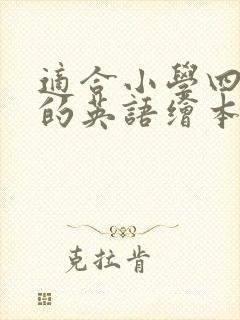 適合小學四
的英語繪本
克拉肯